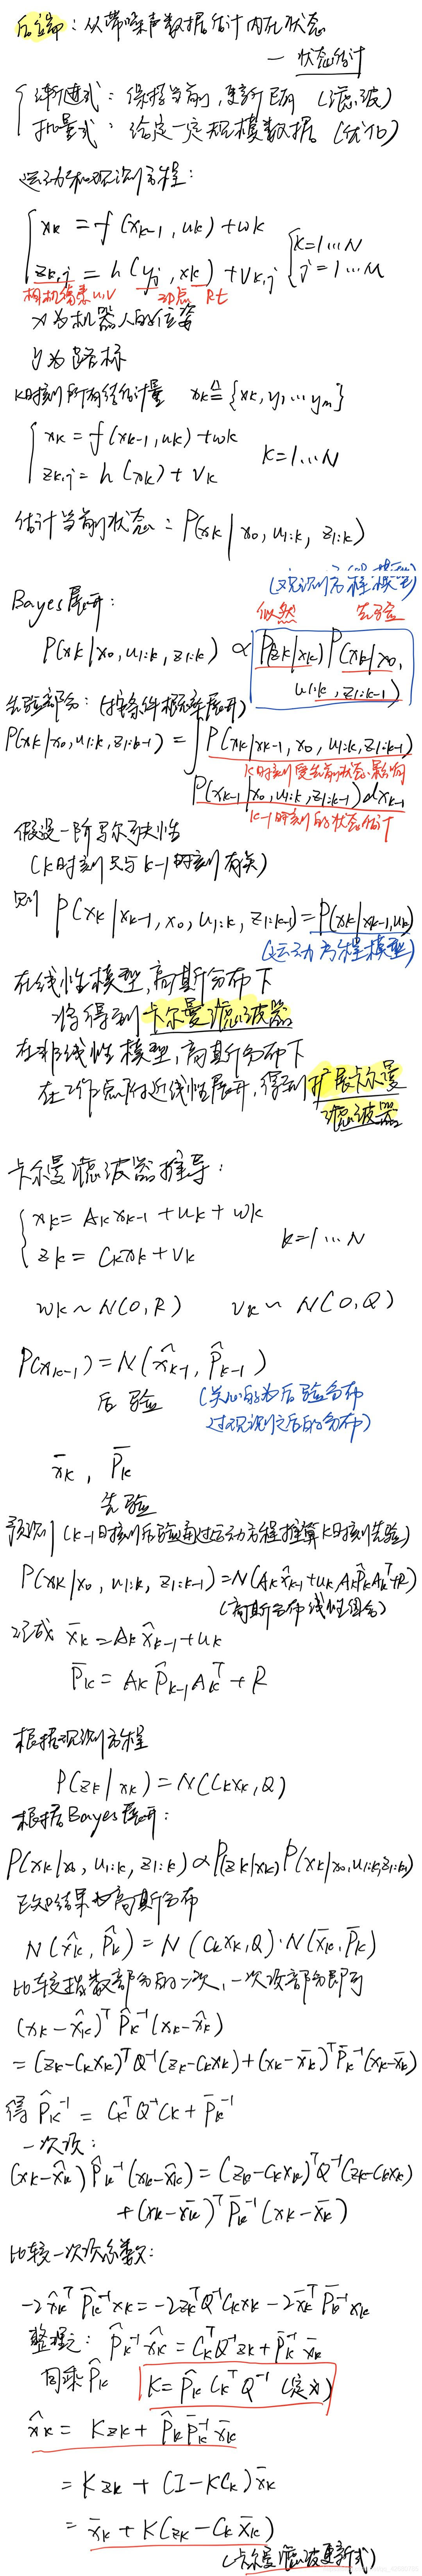 后端：从带噪声数据估计内在状态
— 状态估计
{ 渐进式：保持当前，更新已有（滤波）
批量式：给定一定规模数据（优化）
运动和观测方程：
{ xk = f(xk-1, uk) + wk
zk,j = h(yj, xk) + vk,j { k=1…N j=1…M
相机像素u,v 3D点 Rt
x为机器人的位姿
y为路标
k时刻所有待估计量 xk ≜ {xk, y1…ym}
{ xk = f(xk-1, uk) + wk
zk,j = h(xk) + vk k=1…N
估计当前状态：P(xk | x0, u1:k, z1:k)
(观测方程模型)
Bayes展开： 似然 先验
P(xk | x0, u1:k, z1:k) ∝ P(zk|xk) P(xk|x0,
u1:k, z1:k-1)
先验部分：(按条件概率展开)
P(xk|x0,u1:k,z1:k-1) = ∫P(xk|xk-1, x0, u1:k, z1:k-1)
k时刻受先前状态影响
P(xk-1|x0,u1:k,z1:k-1)dxk-1
k-1时刻的状态估计
假设一阶马尔可夫性
(k时刻只与k-1时刻有关)
则 P(xk|xk-1, x0, u1:k, z1:k-1) = P(xk|xk-1,uk)
(运动方程模型)
在线性模型,高斯分布下
将得到卡尔曼滤波器
在非线性模型,高斯分布下
在工作点附近线性展开，得到扩展卡尔曼
滤波器
卡尔曼滤波器推导：
{ xk = Akxk-1 + uk + wk
zk = Ckxk + vk k=1…N
wk ~ N(0,R) vk ~ N(0,Q)
P(xk-1) = N(x̂k-1, P̂k-1)
后验 (关心的为后验分布
过观测之后的分布)
x̄k , P̄k
先验
预测 (k-1时刻后验通过运动方程推算k时刻先验)
P(xk|x0, u1:k, z1:k-1) = N(Akx̂k-1+uk, AkP̂kAkᵀ+R)
(高斯分布线性组合)
记成 x̄k = Akx̂k-1 + uk
P̄k = Ak P̂k-1 Akᵀ + R
根据观测方程
P(zk | xk) = N(Ckxk, Q)
根据Bayes展开：
P(xk|x0, u1:k, z1:k) ∝ P(zk|xk) P(xk|x0,u1:k,z1:k-1)
已知结果为高斯分布
N(x̂k, P̂k) = N(Ckxk, Q)·N(x̄k, P̄k)
比较指数部分的二次，一次项部分即可
(xk-x̂k)ᵀ P̂k⁻¹(xk-x̂k)
= (zk-Ckxk)ᵀQ⁻¹(zk-Ckxk) + (xk-x̄k)ᵀP̄k⁻¹(xk-x̄k)
得 P̂k⁻¹ = CkᵀQ⁻¹Ck + P̄k⁻¹
一次项：
(xk-x̂k)P̂k⁻¹(xk-x̂k) = (zk-Ckxk)ᵀQ⁻¹(zk-Ckxk)
+ (xk-x̄k)ᵀP̄k⁻¹(xk-x̄k)
比较一次项系数：
-2x̂kᵀP̂k⁻¹xk = -2zkᵀQ⁻¹Ckxk - 2x̄kᵀP̄k⁻¹xk
整理之：P̂k⁻¹x̂k = CkᵀQ⁻¹zk + P̄k⁻¹x̄k
同乘P̂k K = P̂kCkᵀQ⁻¹ (定义)
x̂k = Kzk + P̂kP̄k⁻¹x̄k
= Kzk + (I-KCk)x̄k
= x̄k + K(zk - Ckx̄k)
(卡尔曼滤波更新式)